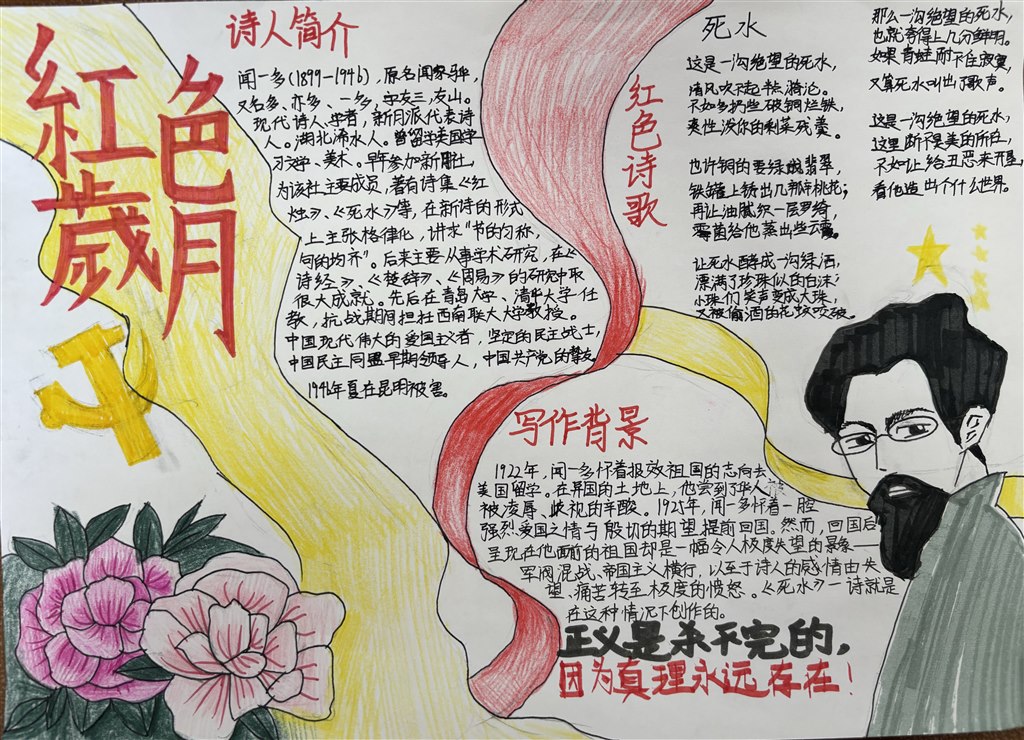 紅色歲月
诗人简介
闻一多(1899-1946),原名闻家骅,
又名多、亦多、一多,字友三,友山。
现代诗人,学者,新月派代表诗
人。湖北浠水人。曾留学美国学
习文学、美术。早年参加新月社,
为该社主要成员,著有诗集《红
烛》、《死水》等,在新诗的形式
上主张格律化,讲求“节的匀称,
句的均齐”。后来主要从事学术研究,在《
诗经》、《楚辞》、《周易》的研究中取
很大成就。先后在青岛大学、清华大学任
教,抗战期间担任西南联大大学教授。
中国现代伟大的爱国主义者,坚定的民主战士,
中国民主同盟早期领导人,中国共产党的挚友。
1946年夏在昆明被害。
红色诗歌
死水
这是一沟绝望的死水,
清风吹不起半点漪沦。
不如多扔些破铜烂铁,
爽性泼你的剩菜残羹。
也许铜的要绿成翡翠,
铁罐上锈出几瓣桃花;
再让油腻织一层罗绮,
霉菌给他蒸出些云霞。
让死水酵成一沟绿酒,
漂满了珍珠似的白沫;
小珠们笑声变成大珠,
又被偷酒的花蚊咬破。
那么一沟绝望的死水,
也就夸得上几分鲜明。
如果青蛙耐不住寂寞,
又算死水叫出了歌声。
这是一沟绝望的死水,
这里断不是美的所在,
不如让给丑恶来开垦,
看他造出个什么世界。
写作背景
1922年,闻一多怀着报效祖国的志向去
美国留学。在异国的土地上,他尝到了华人
被凌辱、歧视的辛酸。1925年,闻一多怀着一腔
强烈爱国之情与殷切的期望提前回国。然而,回国后
呈现在他面前的祖国却是一幅令人极度失望的景象——
军阀混战、帝国主义横行,以至于诗人的感情由失
望、痛苦转至极度的愤怒。《死水》一诗就是
在这种情况下创作的。
正义是杀不完的,
因为真理永远存在!